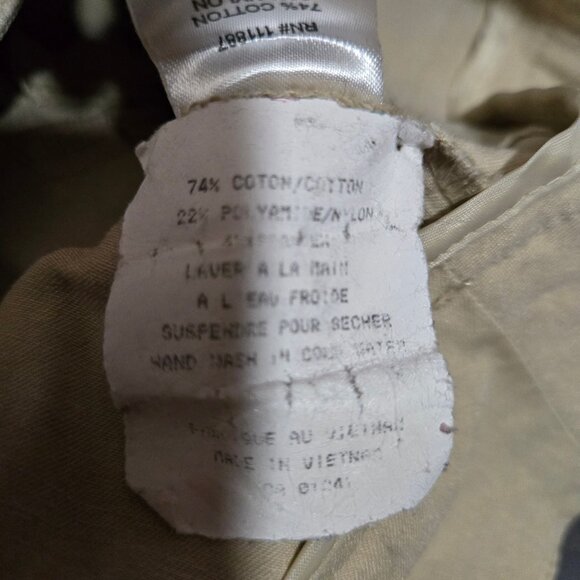 RN# 111887
74% COTTON
74% COTON/COTTON
22% POLYAMIDE/NYLON
LAVER A LA MAIN
A L EAU FROIDE
SUSPENDRE POUR SECHER
HAND WASH IN COLD WATER
FABRIQUE AU VIETNAM
MADE IN VIETNAM